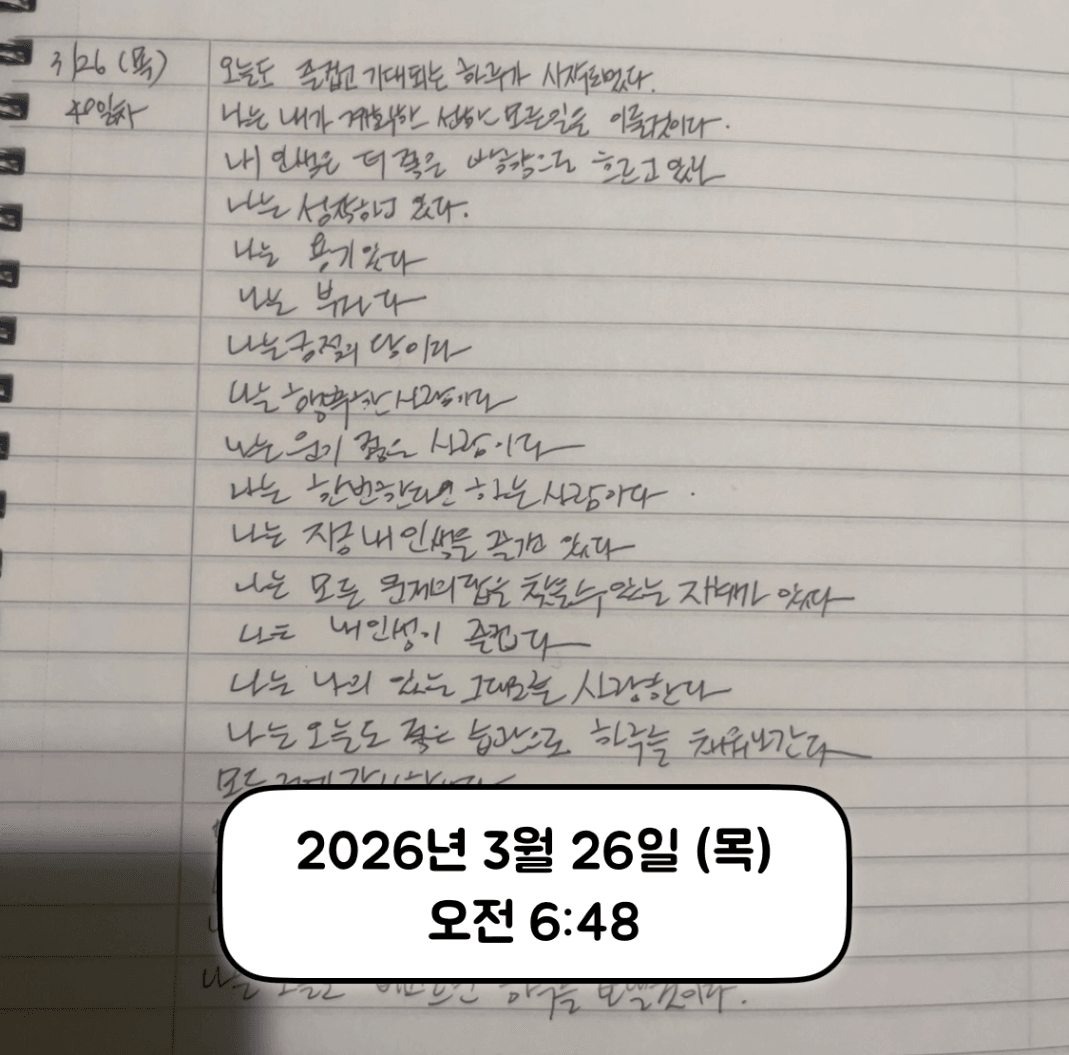 3/26 (목) 오늘도 즐겁고 기대되는 하루가 시작되었다.
40일차 나는 내가 계획한 선한 모든일을 이룰것이다.
내 인생은 더 좋은 방향으로 흐르고 있다
나는 성장하고 있다.
나는 용기있다
나는 부자다
나는 긍정의 왕이다
나는 행복한 사람이다
나는 인기 많은 사람이다
나는 한번한다면 하는사람이다.
나는 지금 내 인생을 즐기고 있다
나는 모든 문제의답을 찾을수있는 지혜가 있다
나는 내인생이 즐겁다
나는 나의 있는 그대로를 사랑한다
나는 오늘도 좋은 습관으로 하루를 채워나간다
모든
2026년 3월 26일 (목)
오전 6:48
나는 하루를 보낼것이다.